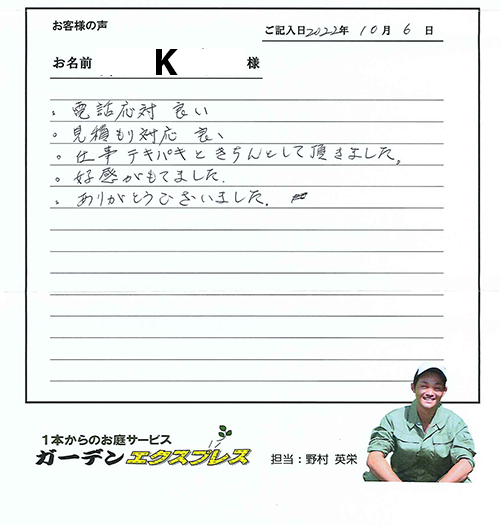 お客様の声
ご記入日2022年 10月 6日
お名前 K 様
。電話応対 良い
。見積もり対応 良い
。仕事テキパキときちんとして頂きました。
。好感がもてました.
。ありがとうございました.
1本からのお庭サービス
ガーデンエクスプレス
担当：野村 英栄